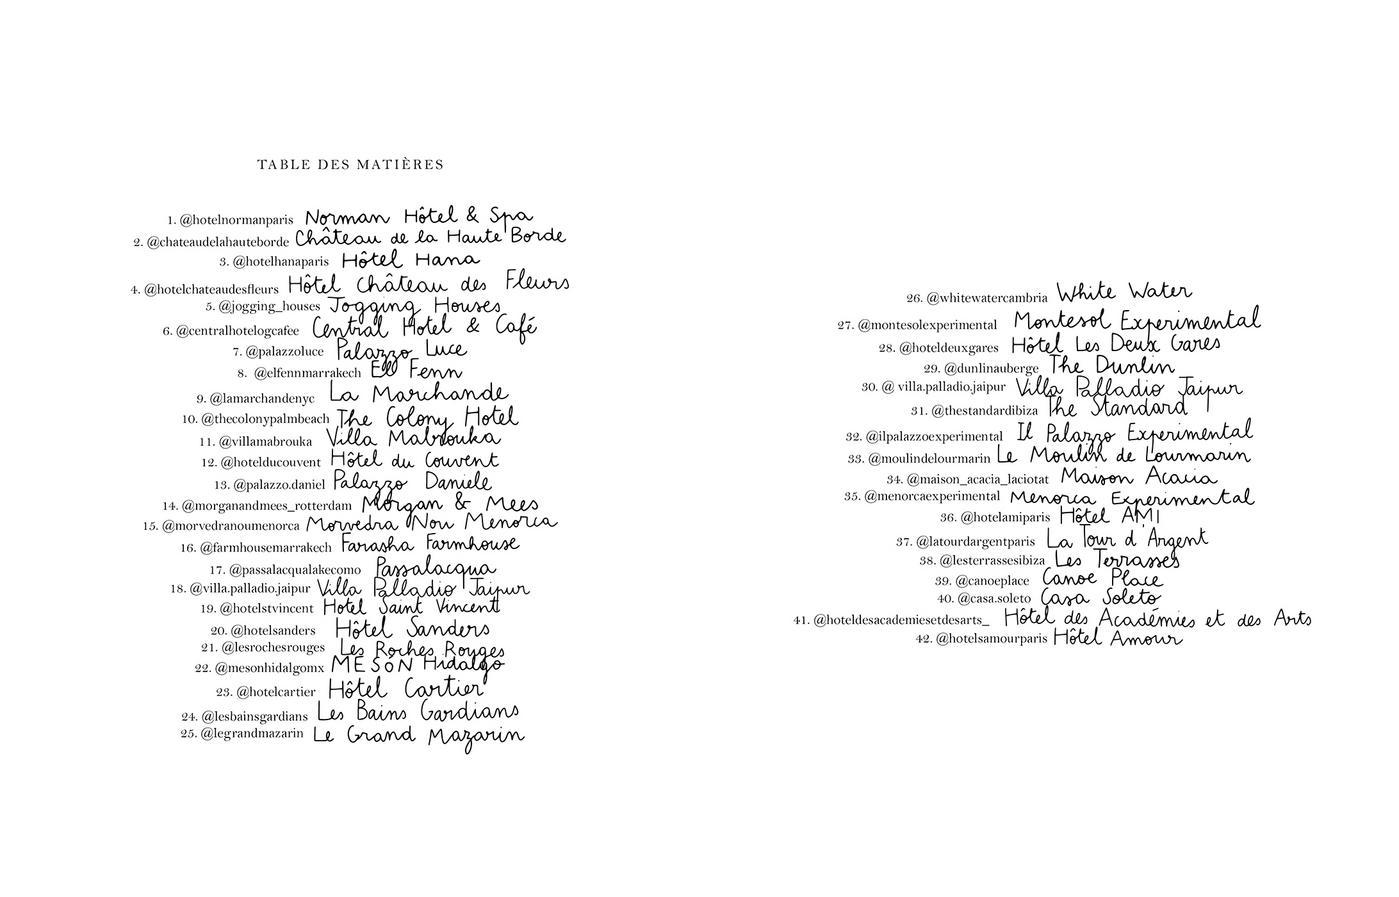 TABLE DES MATIÈRES
1. @hotelnormanparis Norman Hôtel & Spa
2. @chateaudelahauteborde Château de la Haute Borde
3. @hotelhanaparis Hôtel Hana
4. @hotelchateaudesfleurs Hôtel Château des Fleurs
5. @jogging_houses Jogging Houses
6. @centralhotelogcafee Central Hotel & Café
7. @palazzoluce Palazzo Luce
8. @elfennmarrakech El Fenn
9. @lamarchandenyc La Marchande
10. @thecolonypalmbeach The Colony Hotel
11. @villamabrouka Villa Mabrouka
12. @hotelducouvent Hôtel du Couvent
13. @palazzo.daniel Palazzo Daniele
14. @morganandmees_rotterdam Morgan & Mees
15. @morvedranoumenorca Morvedra Nou Menorca
16. @farmhousemarrakech Farasha Farmhouse
17. @passalacqualakecomo Passalacqua
18. @villa.palladio.jaipur Villa Palladio Jaipur
19. @hotelstvincent Hotel Saint Vincent
20. @hotelsanders Hôtel Sanders
21. @lesrochesrouges Les Roches Rouges
22. @mesonhidalgomx MESÓN Hidalgo
23. @hotelcartier Hôtel Cartier
24. @lesbainsgardians Les Bains Gardians
25. @legrandmazarin Le Grand Mazarin
26. @whitewatercambria White Water
27. @montesolexperimental Montesol Experimental
28. @hoteldeuxgares Hôtel Les Deux Gares
29. @dunlinauberge The Dunlin
30. @ villa.palladio.jaipur Villa Palladio Jaipur
31. @thestandardibiza The Standard
32. @ilpalazzoexperimental Il Palazzo Experimental
33. @moulindelourmarin Le Moulin de Lourmarin
34. @maison_acacia_laciotat Maison Acacia
35. @menorcaexperimental Menorca Experimental
36. @hotelamiparis Hôtel AMI
37. @latourdargentparis La Tour d'Argent
38. @lesterrassesibiza Les Terrasses
39. @canoeplace Canoe Place
40. @casa.soleto Casa Soleto
41. @hoteldesacademiesetdesarts_ Hôtel des Académies et des Arts
42. @hotelsamourparis Hôtel Amour